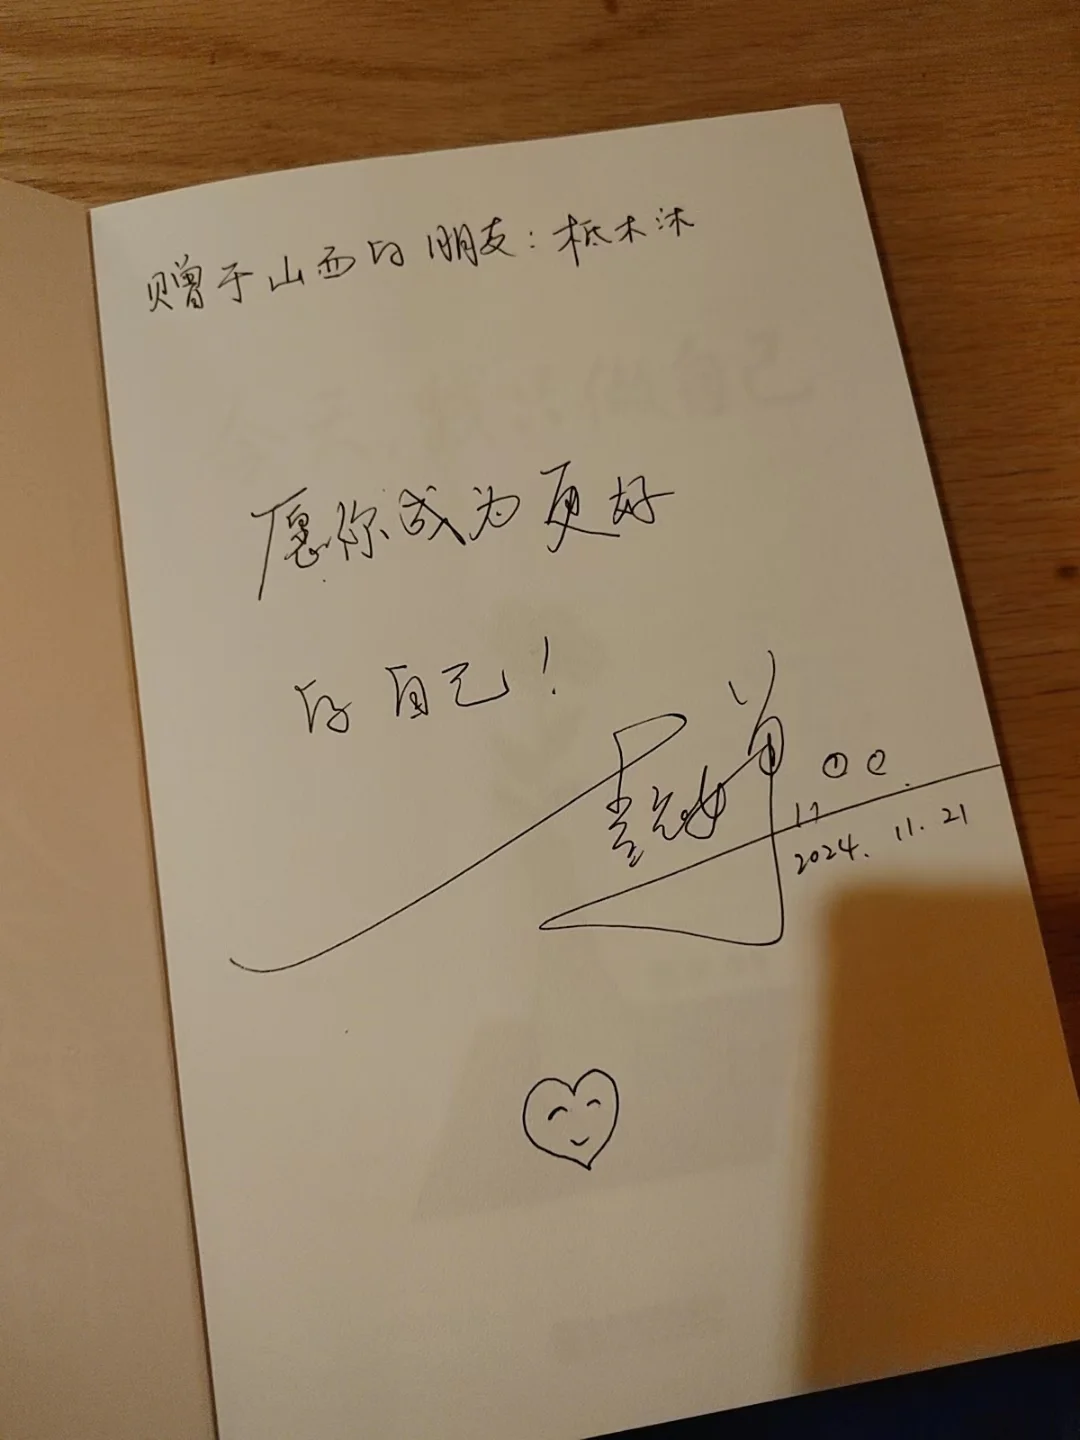 赠于山西的朋友：柢木沐
愿你成为更好
的自己！
2024.11.21